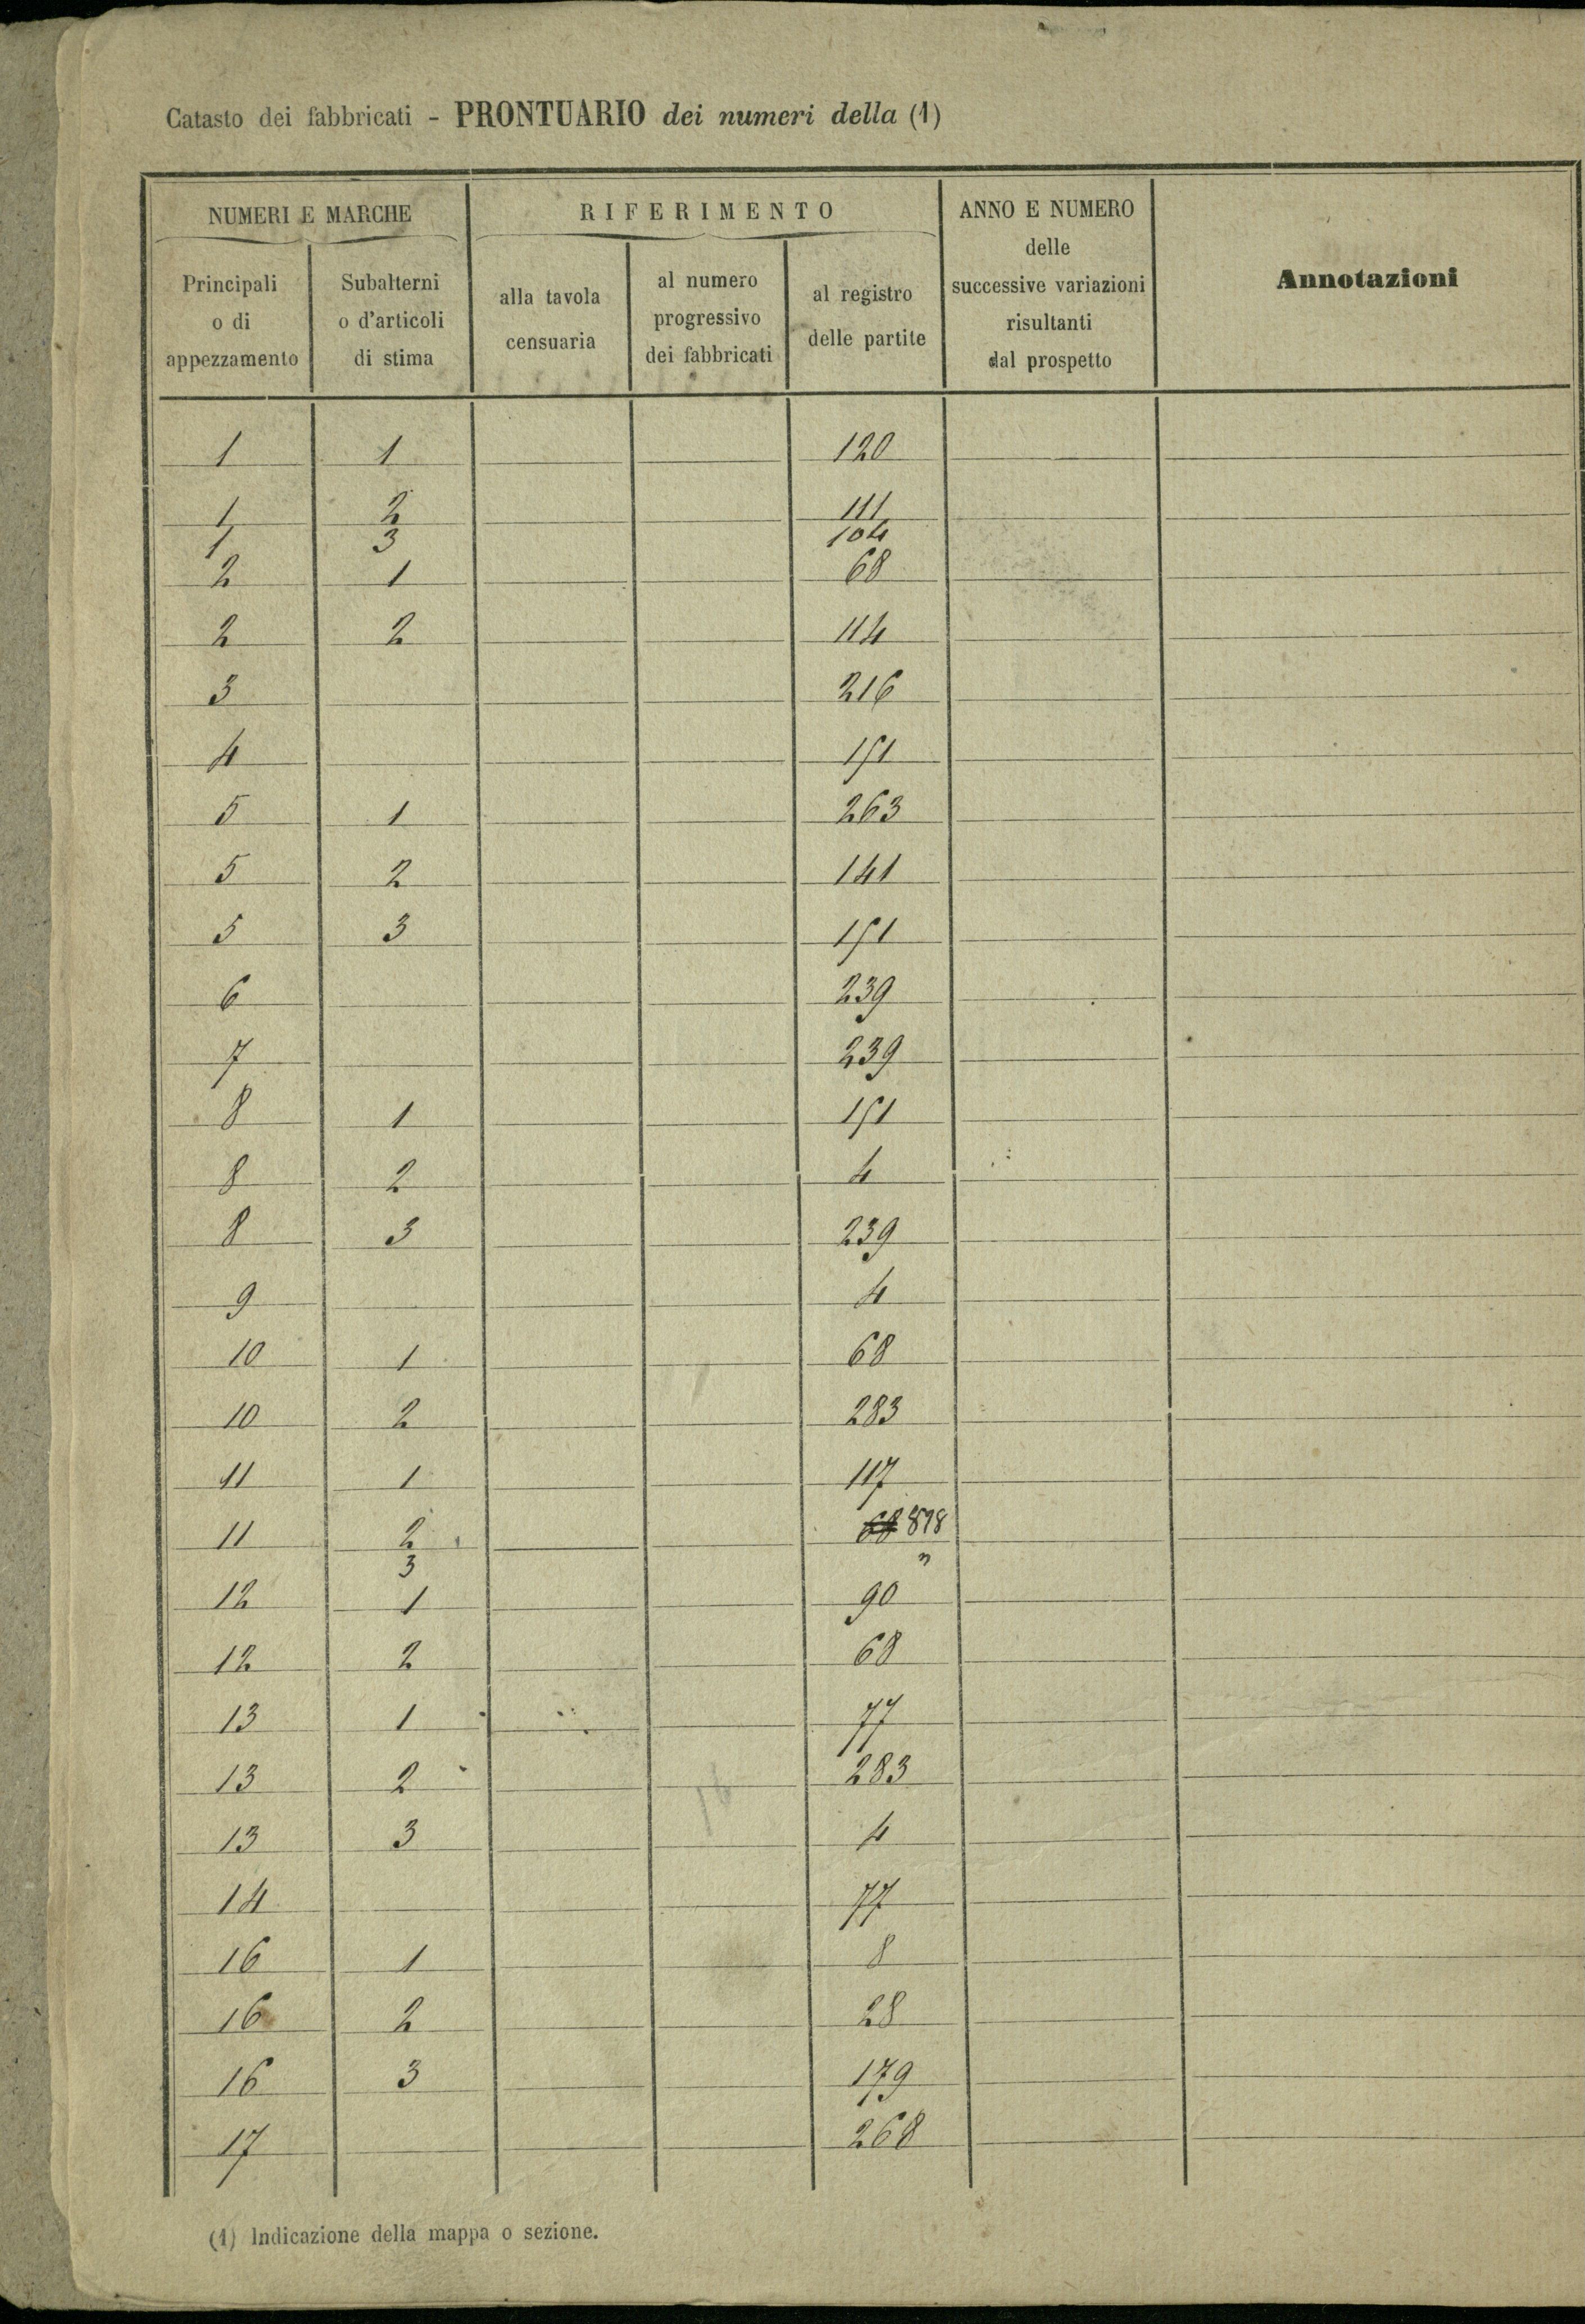 Catasto dei fabbricati - PRONTUARIO dei numeri della (1)
NUMERI E MARCHE
RIFERIMENTO
ANNO E NUMERO
delle
successive variazioni
risultanti
dal prospetto
Annotazioni
Principali
o di
appezzamento
Subalterni
o d'articoli
di stima
alla tavola
censuaria
al numero
progressivo
dei fabbricati
al registro
delle partite
1 1 120
1 2 111
1 3 104
2 1 68
2 2 114
3 216
4 151
5 1 263
5 2 141
5 3 151
6 239
7 239
8 1 151
8 2 4
8 3 239
9 4
10 1 68
10 2 283
11 1 117
11 2 68 878
3 "
12 1 90
12 2 68
13 1 77
13 2 283
13 3 4
14 77
16 1 8
16 2 28
16 3 179
17 268
(1) Indicazione della mappa o sezione.